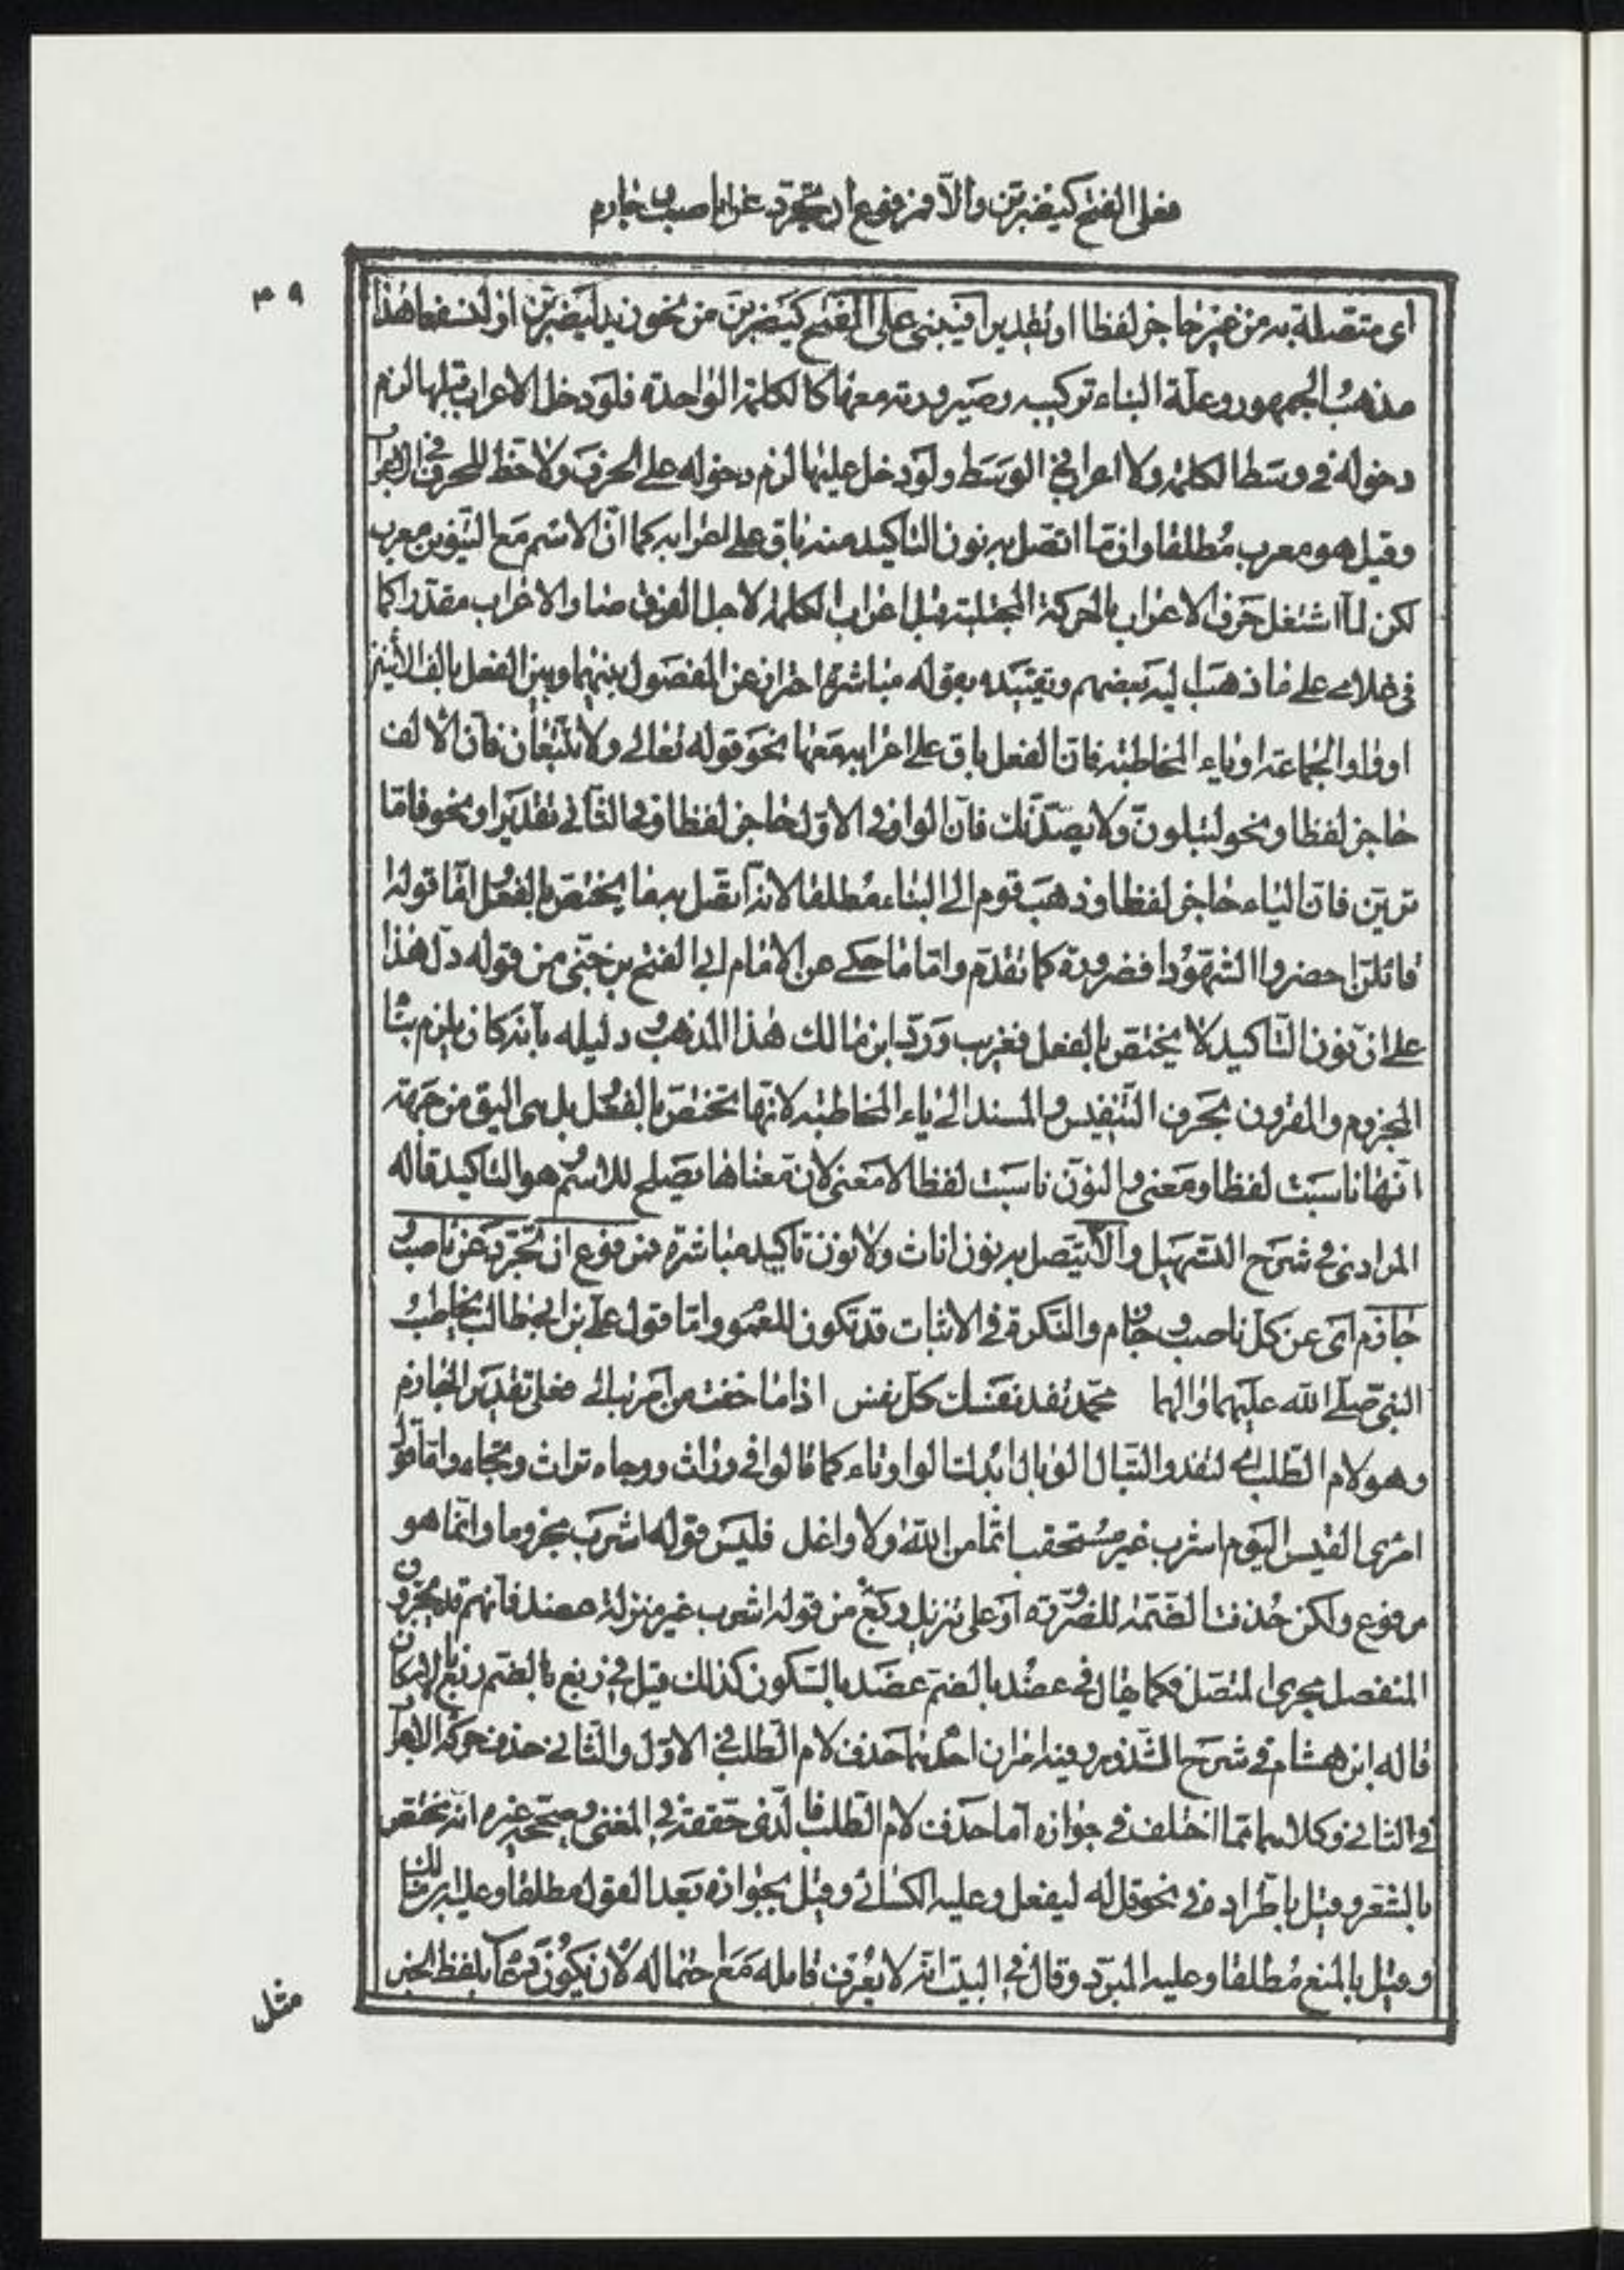 فعلى الفتح كيضربن والا فمرفوع ان تجرد عن ناصب وجازم
٤٩
اى متصلة به من غير حاجز لفظا او تقديرا فيبنى على الفتح كيضربن من نحو زيد ليضربن او لنسفعا هذا
مذهب الجمهور وعلة البناء تركيبه وصيرورته معها كالكلمة الواحدة فلو دخل الاعراب قبلها لزم
دخوله فى وسط الكلمة ولا اعراب فى الوسط ولو دخل عليها لزم دخوله على الحرف ولا حظ للحرف فى الاعراب
وقيل هو معرب مطلقا وان ما اتصل به نون التاكيد منه باق على اعرابه كما ان الاسم مع التنوين معرب
لكن لما اشتغل حرف الاعراب بالحركة المجتلبة قبل اعراب الكلمة لاجل الفرق صار الاعراب مقدرا كما
فى غلامى على ما ذهب اليه بعضهم وتقييده بقوله مباشرة احتراز عن المفصول بينهما وبين الفعل بالف الاثنين
او واو الجماعة او ياء المخاطبة فان الفعل باق على اعرابه معها نحو قوله تعالى ولا تتبعان فان الالف
حاجز لفظا ونحو لتبلون ولا يصدنك فان الواو فى الاول حاجز لفظا وفى الثانى تقديرا ونحو فاما
ترين فان الياء حاجز لفظا وذهب قوم الى البناء مطلقا لانه اتصل به ما يختص بالفعل اما قوله
اقائلن احضروا الشهودا فضرورة كما تقدم واما ما حكى عن الامام ابى الفتح بن جنى من قوله دل هذا
على ان نون التاكيد لا يختص بالفعل فغريب ورد ابن مالك هذا المذهب ودليله بانه كان يلزم بناء
المجزوم والمقرون بحرف التنفيس والمسند الى ياء المخاطبة لانها تختص بالفعل بل هى اليق من جهة
انها ناسبت لفظا ومعنى والنون ناسبت لفظا لا معنى لان معناها يصلح للاسم وهو التاكيد قاله
المرادى فى شرح التسهيل والا يتصل به نون اناث ولا نون تاكيد مباشرة فمرفوع ان تجرد عن ناصب و
جازم اى عن كل ناصب وجازم والنكرة فى الاثبات قد تكون للعموم واما قول على بن ابى طالب يخاطب
النبى صلى الله عليهما والهما محمد تفد نفسك كل نفس اذا ما خفت من امر تبالا فعلى تقدير الجازم
وهو لام الطلب اى لتفد والتبال الوبال ابدلت الواو تاء كما قالوا فى وراث ووجاه تراث وتجاه واما قول
امرى القيس اليوم اشرب غير مستحقب اثما من الله ولا واغل فليس قوله اشرب مجزوما وانما هو
مرفوع ولكن حذفت الضمة للضرورة او على تنزيل ربغ من قوله اشرب غير منزلة عضد فانهم قد يجرون
المنفصل مجرى المتصل فكما يقال فى عضد بالضم عضد بالسكون كذلك قيل فى ربغ بالضم ربغ بالاسكان
قاله ابن هشام فى شرح الشذور وفيه امران احدهما حذف لام الطلب فى الاول والثانى حذف حركة الاعراب
فى الثانى وكلاهما مما اختلف فى جوازه اما حذف لام الطلب فالذى حققه فى المغنى وصححه غيره انه يختص
بالشعر وقيل باطراده فى نحو قل له ليفعل وعليه الكسائى وقيل بجوازه بعد القول مطلقا وعليه ابن مالك
وقيل بالمنع مطلقا وعليه المبرد وقال فى البيت انه لا يعرف قائله مع احتماله لان يكون دعاء بلفظ الخبر
مثل